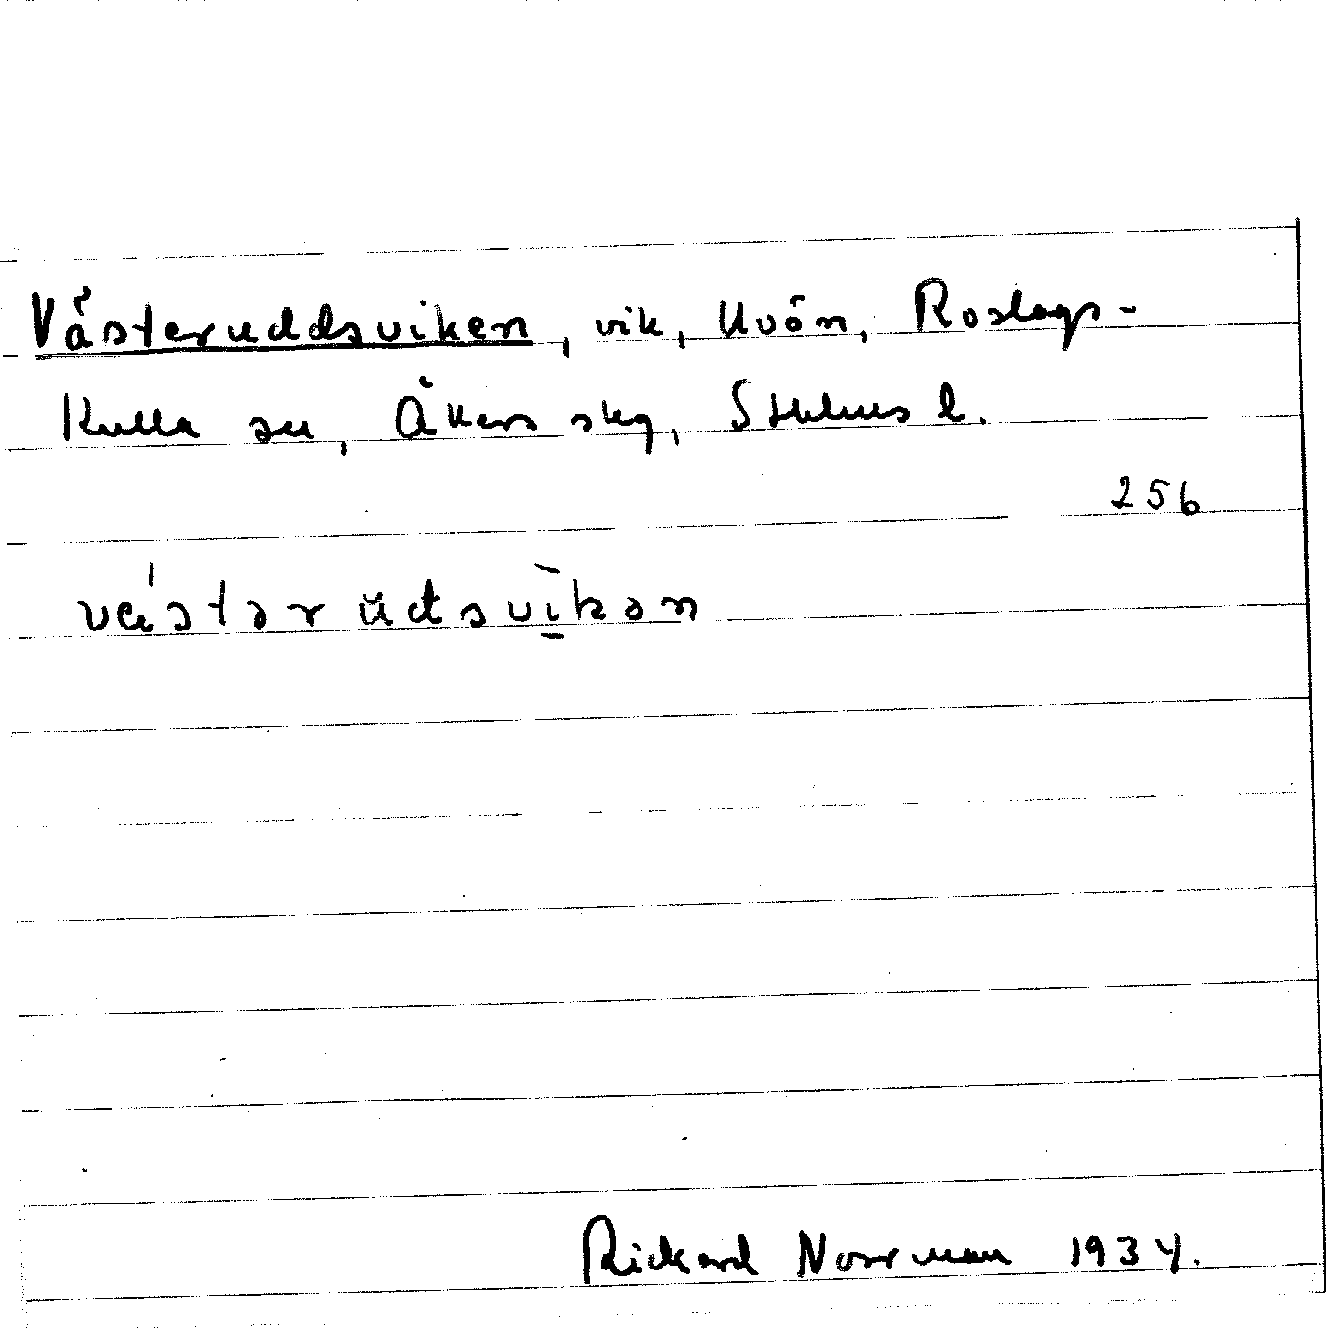 Västeruddsviken, vik, Uvön, Roslags-
Kulla sn, Åkers skg, Sthlms l.
256
västərudsvikən
Rickard Norrman 1934.